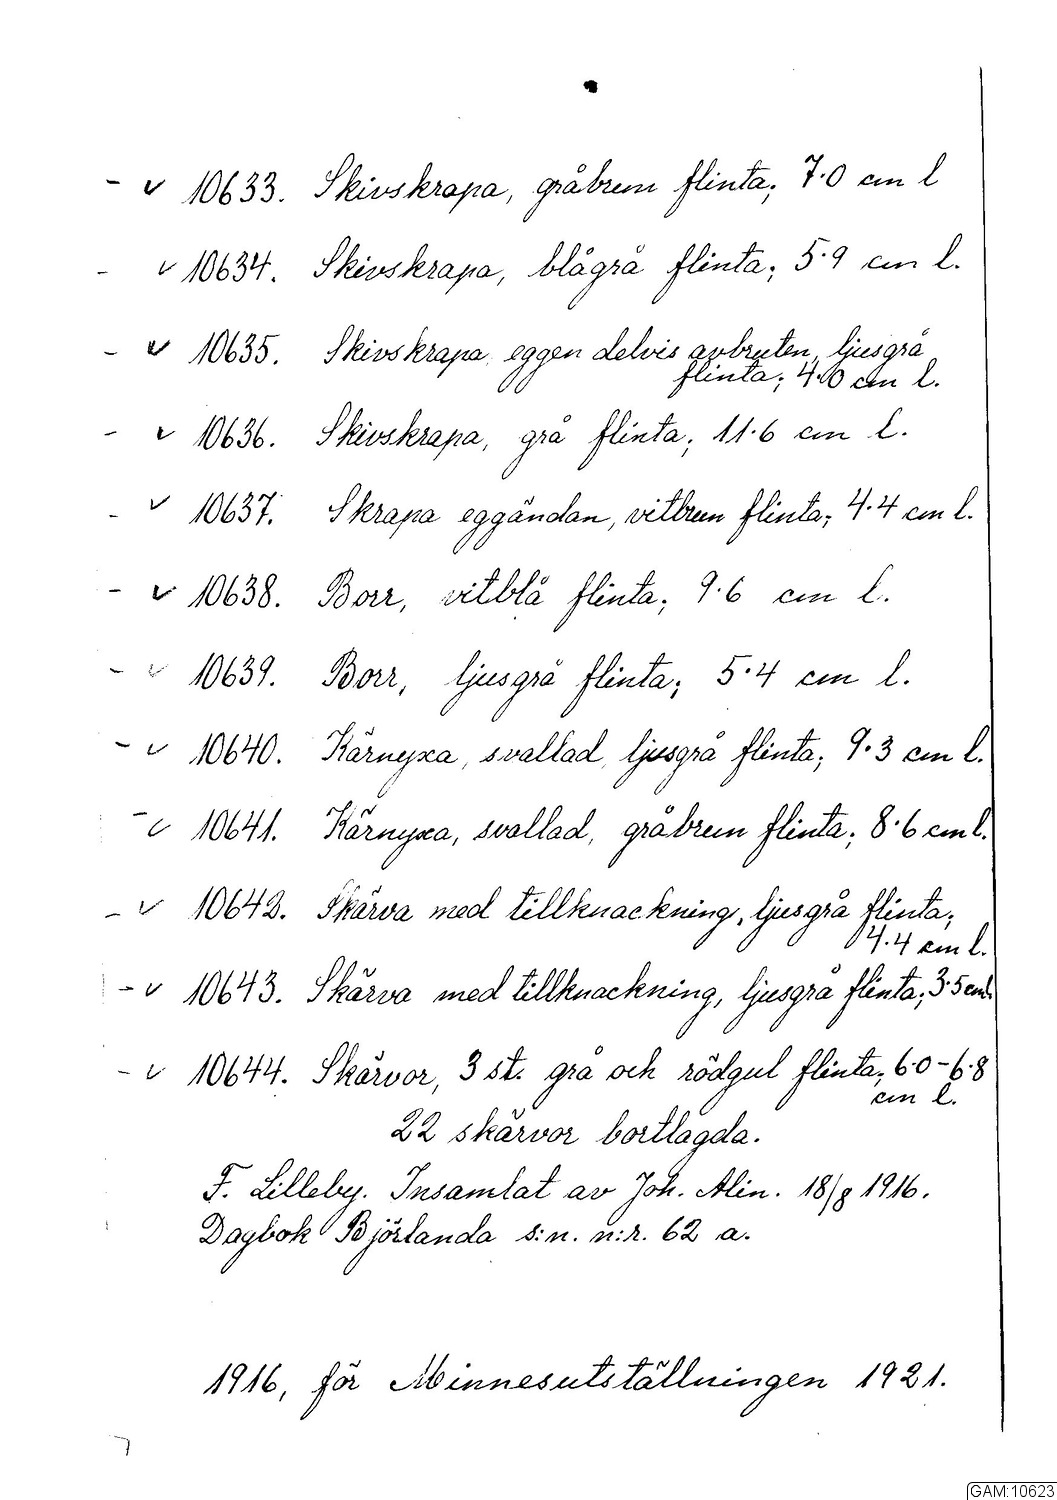 - v 10633. Skivskrapa, gråbrun flinta; 7·0 cm l
- v 10634. Skivskrapa, blågrå flinta; 5·9 cm l.
- v 10635. Skivskrapa, eggen delvis avbruten, ljusgrå
flinta; 4·0 cm l.
- v 10636. Skivskrapa, grå flinta; 11·6 cm l.
- v 10637. Skrapa eggändan, vitbrun flinta; 4·4 cm l.
- v 10638. Borr, vitblå flinta; 9·6 cm l.
- v 10639. Borr, ljusgrå flinta; 5·4 cm l.
- v 10640. Kärnyxa, svallad, ljusgrå flinta; 9·3 cm l.
- v 10641. Kärnyxa, svallad, gråbrun flinta; 8·6 cm l.
- v 10642. Skärva med tillknackning, ljusgrå flinta;
4·4 cm l.
- v 10643. Skärva med tillknackning, ljusgrå flinta; 3·5 cm l.
- v 10644. Skärvor, 3 st. grå och rödgul flinta; 6·0-6·8
cm l.
22 skärvor bortlagda.
F. Lilleby. Insamlat av Joh. Alin. 18/8 1916.
Dagbok Björlanda s:n. n:r. 62 a.
1916, för Minnesutställningen 1921.
GAM:10623